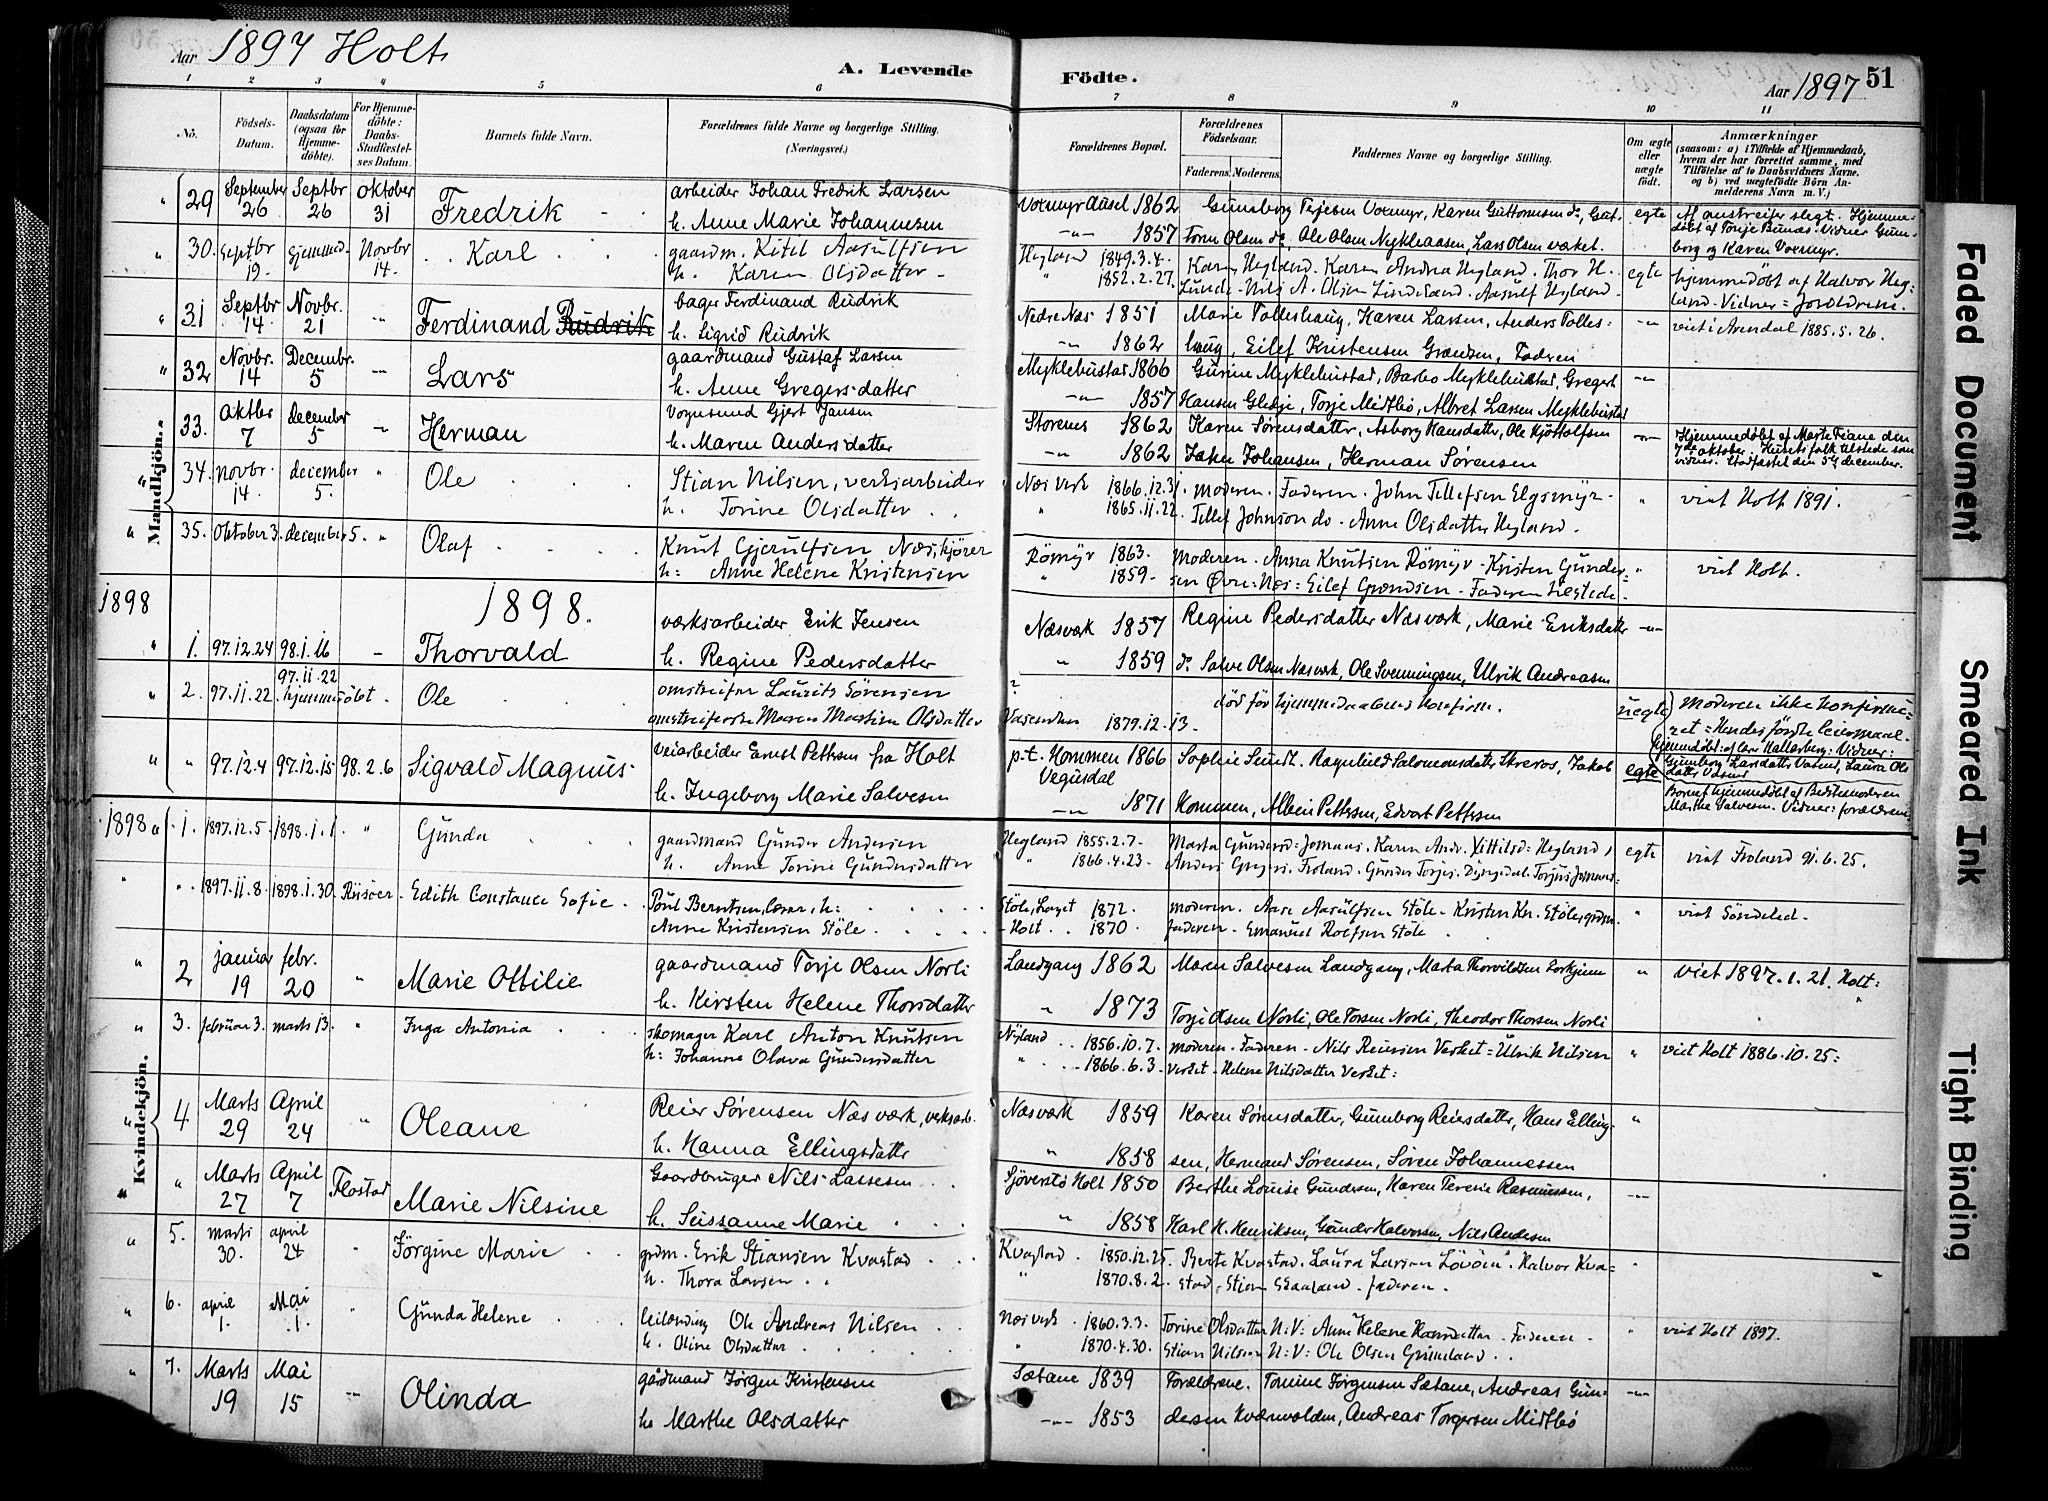 Aar 1897 Holt
A. Levende Födte.
Aar 1897 51
1 2 3 4 5 6 7 8 9 10 11
No. Födsels-Datum. Daabsdatum (ogsaa for Hjemme-döbte). For Hjemme-döbte: Daabs-Stadfæstel-ses Datum. Barnets fulde Navn. Forældrenes fulde Navne og borgerlige Stilling. (Næringsvei.) Forældrenes Bopæl. Forældrenes Födselsaar. Faderens. Moderens. Faddernes Navne og borgerlige Stilling. Om ægte eller uægte födt. Anmærkninger (saasom: a) i Tilfælde af Hjemmedaab, hvem der har forrettet samme, med Tilföielse af to Daabsvidners Navne. og b) ved uægtefödte Börn An-melderens Navn m. V.)
29 September 26 Septbr 26 Oktober 31 Fredrik arbeider Johan Fredrik Larsen
h. Anne Marie Johannesen
Vormyr Ausel 1862 Gunborg Terjesen Vormyr, Karen Guttormsen do, Gut-
-"- 1857 torm Olsen do, Ole Olsen Nykleaasen, Lars Olsen værket.
egte Af omstreifer slegt. Hjemme-
döbt af Tonje Bunæs. Vidner Gun-
borg og Karen Vormyr.
30. Septbr 19. hjemmed. Novbr 14. Karl gaardm. Kitel Aasulfsen
h. Karen Olsdatter
Hegland 1849.3.4. Karen Hegland. Karen Andrea Hegland. Thor H.
" 1852.2.27. Lunde - Nils A. Olsen Aasulf Hegland
egte hjemmedöbt af Halvor Heg-
land - Vidner = forældrene.
31 Septbr 14 Novbr. 21 Ferdinand Rudrik bager Ferdinand Rudrik
h. Sigrid Rudrik
Nedre Næs 1851 Marie Tolleshaug, Karen Larsen, Anders Tolles=
-"- 1862 haug, Eilef Kristensen Grændsen, Faderen
-"- viet i Arendal 1885.5.26.
32 Novbr. 14 Decembr. 5 Lars gaardmand Gustaf Larsen
h. Anne Gregersdatter
Myklebustad 1866 Gurine Myklebustad, Barbo Myklebustad, Gregert
-"- 1857 Hansen Gledje, Torje Midtbö, Albret Larsen Myklebustad
33. Oktbr 7 decembr 5 Herman Vognmand Gjert Jansen
h. Maren Andersdatter
Storenes 1862 Karen Sørensdatter, Asborg Hansdatter, Ole Kjöstolfsen
-"- 1862 Jakob Johansen, Herman Sørensen
Hjemmedöbt af Marte Feane den
7de oktober. Husets folk tilstede som
vidner. Stadfæstet den 5te december.
34. Novbr. 14. december 5. Ole Stian Nilsen, verksarbeider
h. Torine Olsdatter
Næs Verk 1866.12.31. Moderen. Faderen. John Tellefsen Elgsmyr.
" 1865.11.22. Tellef Johnson do. Anne Olsdatter Hegland.
" viet Holt 1891.
35. Oktober 3. december 5. " Olaf Knut Gjerulfsen Næs, kjörer
h: Anne Helene Kristensen
Römyr 1863. Moderen. Anna Knutsen Römyr - Kristen Gunder-
" 1859. sen Øvre=Næs = Eilef Grændsen - Faderen tilstede.
" viet Holt.
1898 1898.
1. 97.12.24 98.1.16 Thorvald værksarbeider Erik Jensen
h. Regine Pedersdatter
Næsværk 1857 Regine Pedersdatter Næsværk, Marie Eriksdatter
" 1859 do. Salve Olsen Næsværk, Ole Svenningsen, Ulrik Andreasen
2. 97.11.22. 97.11.22 hjemmedöbt. Ole omstreifer Laurits Sörensen
omstreiferske Maren Martine Olsdatter
? död för hjemmedaabens konfirm.
1879.12.13.
uegte Moderen ikke konfirme=
ret = Hendes förste leiermaal.
hjemmedöbt af Lars Vidner:
Gunborg Larsdatter Vasend, Laura Ols
datter Vasend
" 97.12.4 97.12.15 98.2.6 Sigvald Magnus veiarbeider Ernst Pettersen fra Holt
h. Ingeborg Marie Salvesen
p.t. Hommen 1866 Sophie Lundt. Ragnhild Salomonsdatter Skreros, Jakob
Vegusdal
-"- 1871 Hommen, Albein Pettersen, Edvart Pettersen
egte Barnet hjemmedöbt af Bedstemoderen
Marthe Salvesen. Vidner: forældrene
Mandkjön.
1898 1. 1897.12.5. 1898.1.1. " Gunda gaardmand Gunder Andersen
h. Anne Torine Gundersdatter
Hegland 1855.2.7. Marta Gundersd = Jomaas. Karen Andr. Kittilsd = Hegland,
" 1866.4.23. Anders Gregers. Froland. Gunder Torjus.
egte viet Froland 91.6.25.
1897.11.8. 1898.1.30. Risöer. Edith Constance Sofie. Poul Berntsen, lærer, h:
Anne Kristensen Stöle
Stöle, Laget 1872. Moderen. Aase Aasulfsen Stöle. Kristen Kr. Stöle, grdm.
Holt. 1870. Faderen. Emanuel Rolfsen Stöle
" viet Söndeled.
2 januar 19 febr. 20 Marie Ottilie gaardmand Torje Olsen Norli
h. Kirsten Helene Thorsdatter
Landgang 1862 Maren Salvesen Landgang, Marta Thorvildsen
" 1873 Norli, Ole Torsen Norli, Theodor Thorsen Norli
" viet 1897.1.21. Holt.
3. februar 3. marts 13. " Inga Antonia skomager Karl Anton Knutsen
h: Johanne Olava Gundersdatter
Nyland 1856.10.7. Moderen. Faderen. Nils Reiersen Verket = Ulrik Nilsen
" 1866.6.3. Verket. Helene Nilsdatter Verket:
" viet Holt 1886.10.25:
4 Marts 29 April 24 " Oleane Reier Sørensen Næsværk, verksarb.
h. Hanna Ellingsdatter
Næsværk 1859 Karen Sörensdatter, Gunborg Reiersdatter, Hans Elling-
" 1858 sen, Hermand Sørensen, Søren Johannessen
" Marts 27 April 7 Flostad Marie Nilsine Gaardbruger Nils Lassesen
h. Seissanne Marie
Sjöverstö Holt 1850 Berthe Louise Gundersen, Karen Terese Rasmussen,
" 1858 Karl H. Henriksen, Gunder Halvorsen, Nils Andersen
5. marts 30. april 24 " Jörgine Marie grdm. Erik Stiansen Kvastad
h. Thora Larsen
Kvastad. 1850.12.25. Berte Kvastad. Laura Larsen Halvor Kva=
" 1870.8.2. stad. Stian Faderen.
6. april 1. Mai 1. " Gunda Helene Ole Andreas Nilsen
h. Oline Olsdatter
Næs verk 1860.3.3. Torine Olsdatter N:V: Anne Helene Hansdatter. Faderen.
" 1870.4.30. Stian Nilsen N:V: Ole Olsen Grimeland.
" viet Holt 1897.
7. Marts 19 Mai 15 Olinda gårdmand Jörgen Kristensen
h. Marthe Olsdatter
Sætane 1839 Forældrene. Tomine Jörgensen Sætane, Andreas Gun-
-"- 1853 dersen Kværnvolden, Andreas Torgersen Midtbö
Kvindekjön.
Faded Document
Smeared Ink
Tight Binding